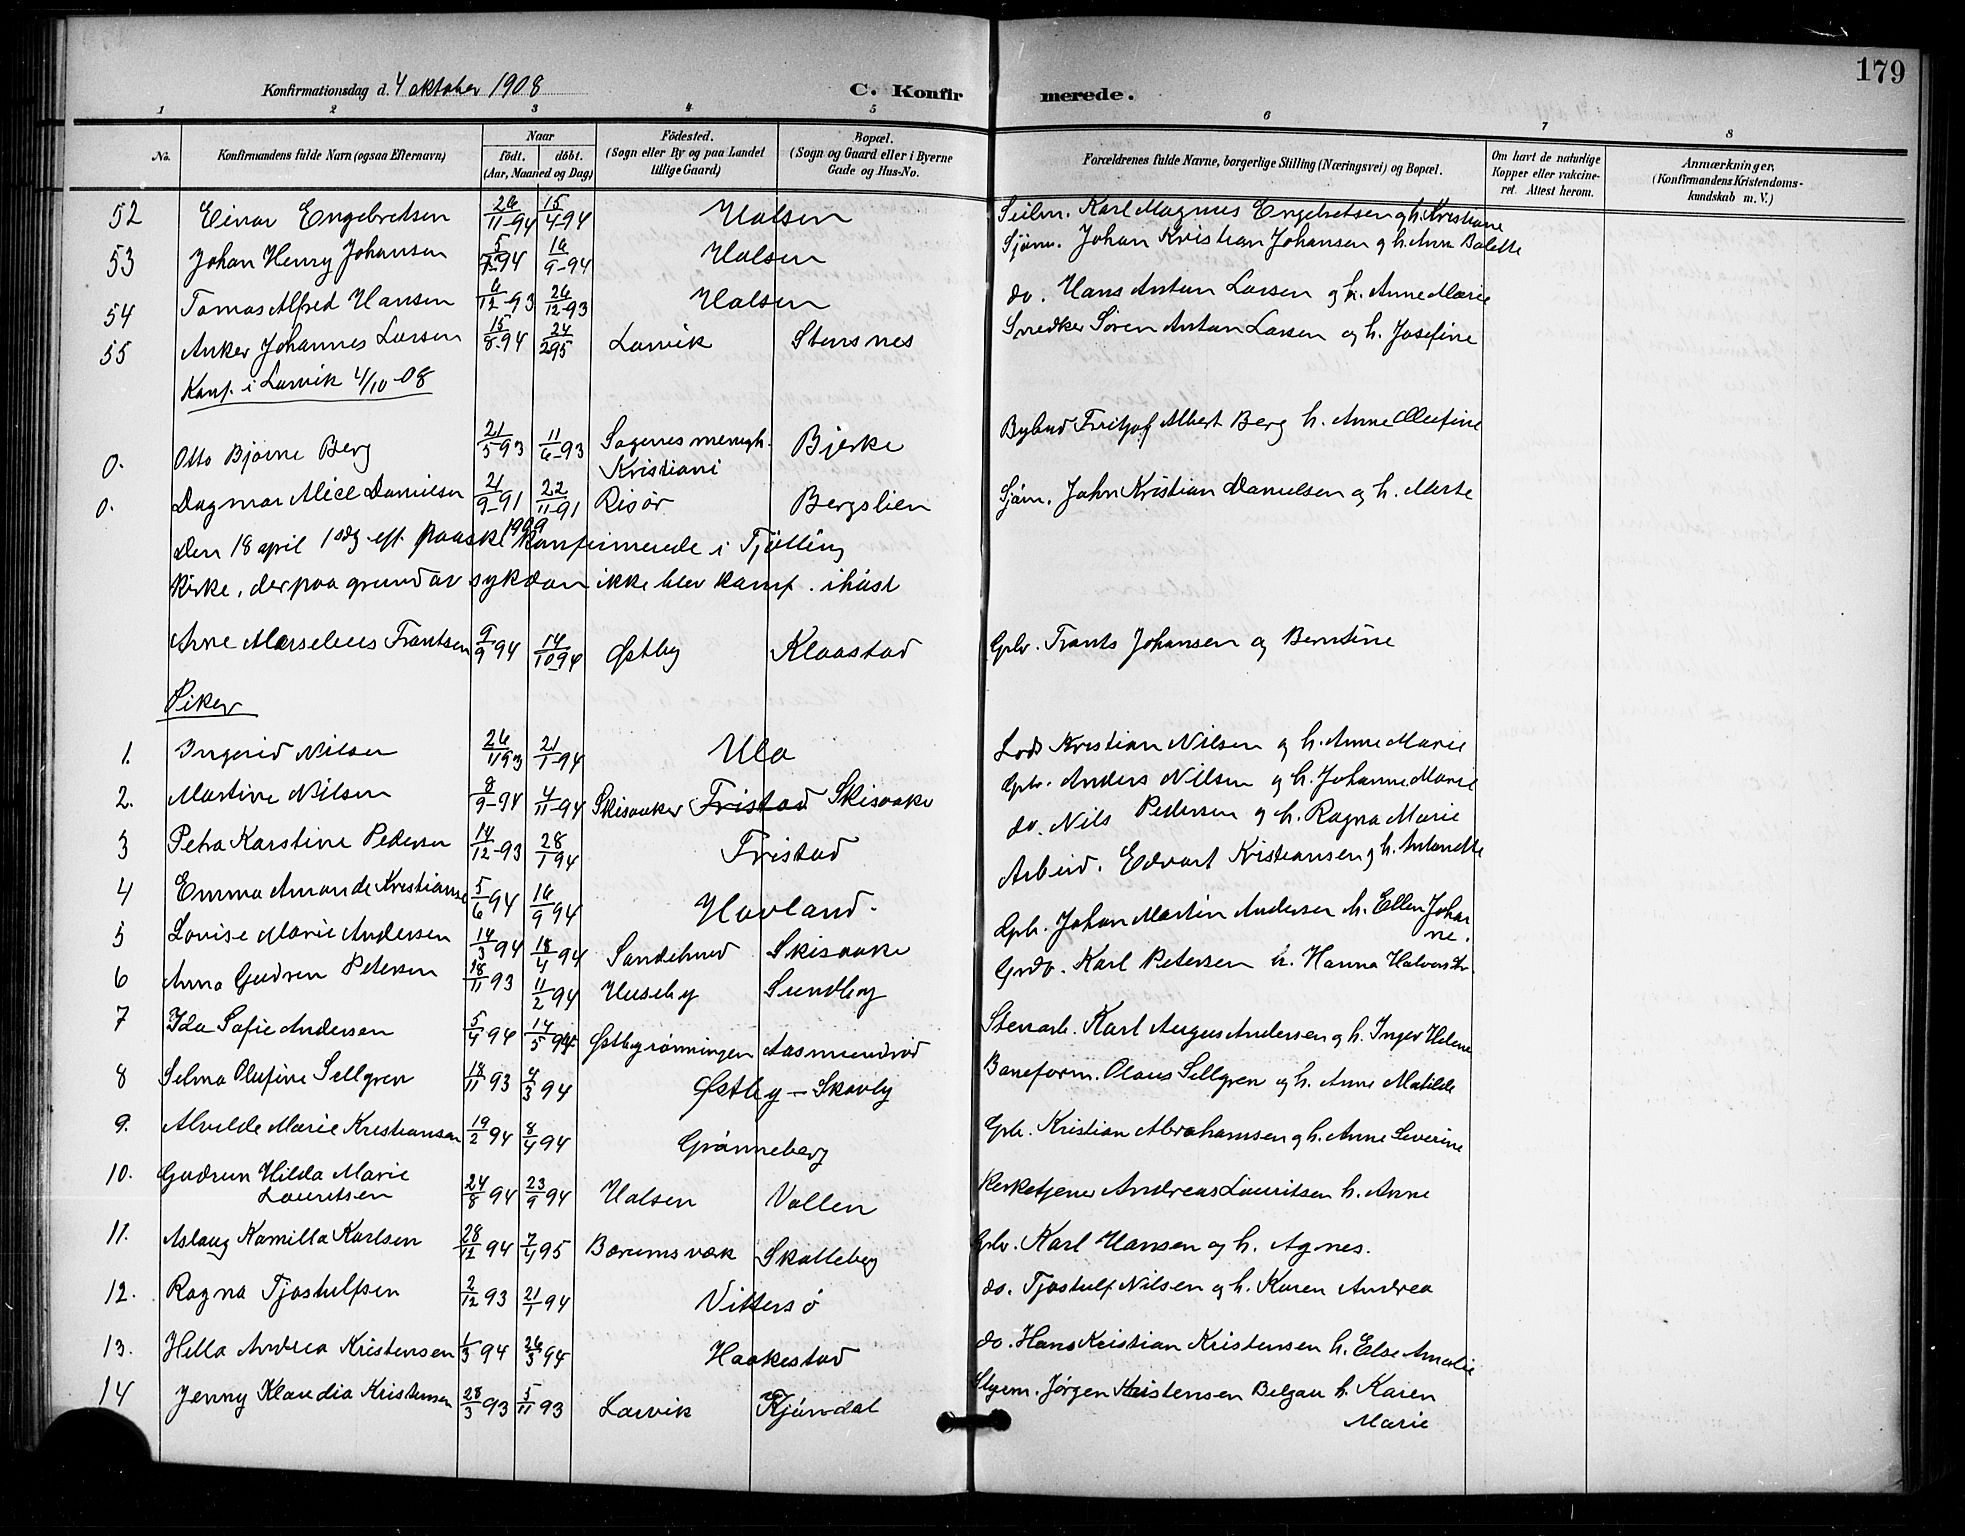 179
Konfirmationsdag d. 4 oktober 1908 C. Konfirmerede.
1 2 3 4 5 6 7 8
No. Konfirmandens fulde Navn (ogsaa Efternavn) Naar født. døbt. (Aar, Maaned og Dag) Fødested. (Sogn eller By og paa Landet tillige Gaard) Bopæl. (Sogn og Gaard eller i Byerne Gade og Hus-No. Forældrenes fulde Navne, borgerlige Stilling (Næringsvei) og Bopæl. Om havt de naturlige Kopper eller vakcineret. Attest herom. Anmærkninger. (Konfirmandens Kristendomskundskab m. V.)
52 Einar Engebretsen 26/11-94 15/4-94 Halsen Seilm. Karl Magnus Engebretsen og h. Kristiane
53 Johan Henry Johansen 94 16/9-94 Halsen Sjøm. Johan Kristian Johansen og h. Anne Bolette
54 Tomas Alfred Hansen 6/12-93 26/12-93 Halsen do. Hans Anton Larsen og h. Anne Marie
55 Anker Johannes Larsen 15/8-94 24/2 95 Larvik Stensnes Snedker Søren Anton Larsen og h. Josefine
Konf. i Larvik 4/10-08
0. Otto Bjarne Berg 21/5-93 11/6-93 Sagenes menigh. Kristiani Bjerke Fritjof Albert Berg h. Anne Olefine
0. Dagmar Alice Danielsen 21/9-91 22/11-91 Risør Bergslien Sjøm. John Kristian Danielsen og h. Merte
Den 18 april 1 sdg. eft. paaske 1909 konfirmerede i Tjølling
Kirke, der paa grund av sykdom ikke blev konf. i høst
Arne Marselius Frantsen 9/9 94 14/10-94 Østby Klaastad Gbr. Frants Johansen og Berntine
Piker
1. Ingerid Nilsen 26/11 93 21/1-94 Ula Lods Kristian Nilsen og h. Anne Marie
2. Martine Nilsen 8/9-94 4/11-94 Skisaaker Fristad Skisaake Gbr. Anders Nilsen og h. Johanne Marie
3 Petra Karstine Pedersen 14/12-93 28/1 94 Fristad do. Nils Pedersen og h. Ragna Marie
4 Emma Amanda Kristianse 5/6 94 16/9 94 Havland. Arbeid. Edvart Kristiansen og h. Antonette
5 Lovise Marie Andersen 14/3 94 18/4 94 Sandeherred Skisaake Gbr. Johan Martin Andersen h. Ellen Johanne.
6 Anna Gudrun Petersen 18/11 93 11/2 94 Huseby Sundby Karl Petersen h. Hanna
7 Ida Sofie Andersen 5/4 94 14/5 94 Østbyrønningen Aasmundrød Stenarb. Karl August Andersen og h. Inger Helene
8 Selma Olufine Sellgren 18/11 93 4/3 94 Østby - Skavby Baneform. Olaus Sellgren og h. Anne Matilde
9. Alvilde Marie Kristiansen 19/2 94 8/4 94 Grønneberg Gbr. Kristian Abrahamsen og h. Anne Severine
10. Gudrun Hilda Marie Lauritsen 24/8 94 23/9 94 Halsen Vallen Kirketjener Andreas Lauritsen h. Anne
11. Aslaug Kamilla Karlsen 28/12 94 7/4 95 Bærums værk Skalleberg Gbr. Karl Hansen og h. Agnes.
12. Ragna Tjøstulfsen 2/12 93 21/1 94 Vittersø do. Tjøstulf Nilsen og h. Karen Andrea
13. Hella Andrea Kristensen 1/3 94 26/3 94 Haakestad do. Hans Kristian Kristensen h. Else Amalie
14 Jenny Klaudia Kristensen 28/3 93 5/11 93 Larvik Kjøndal Styrm. Jørgen Kristensen Belgau h. Karen Marie